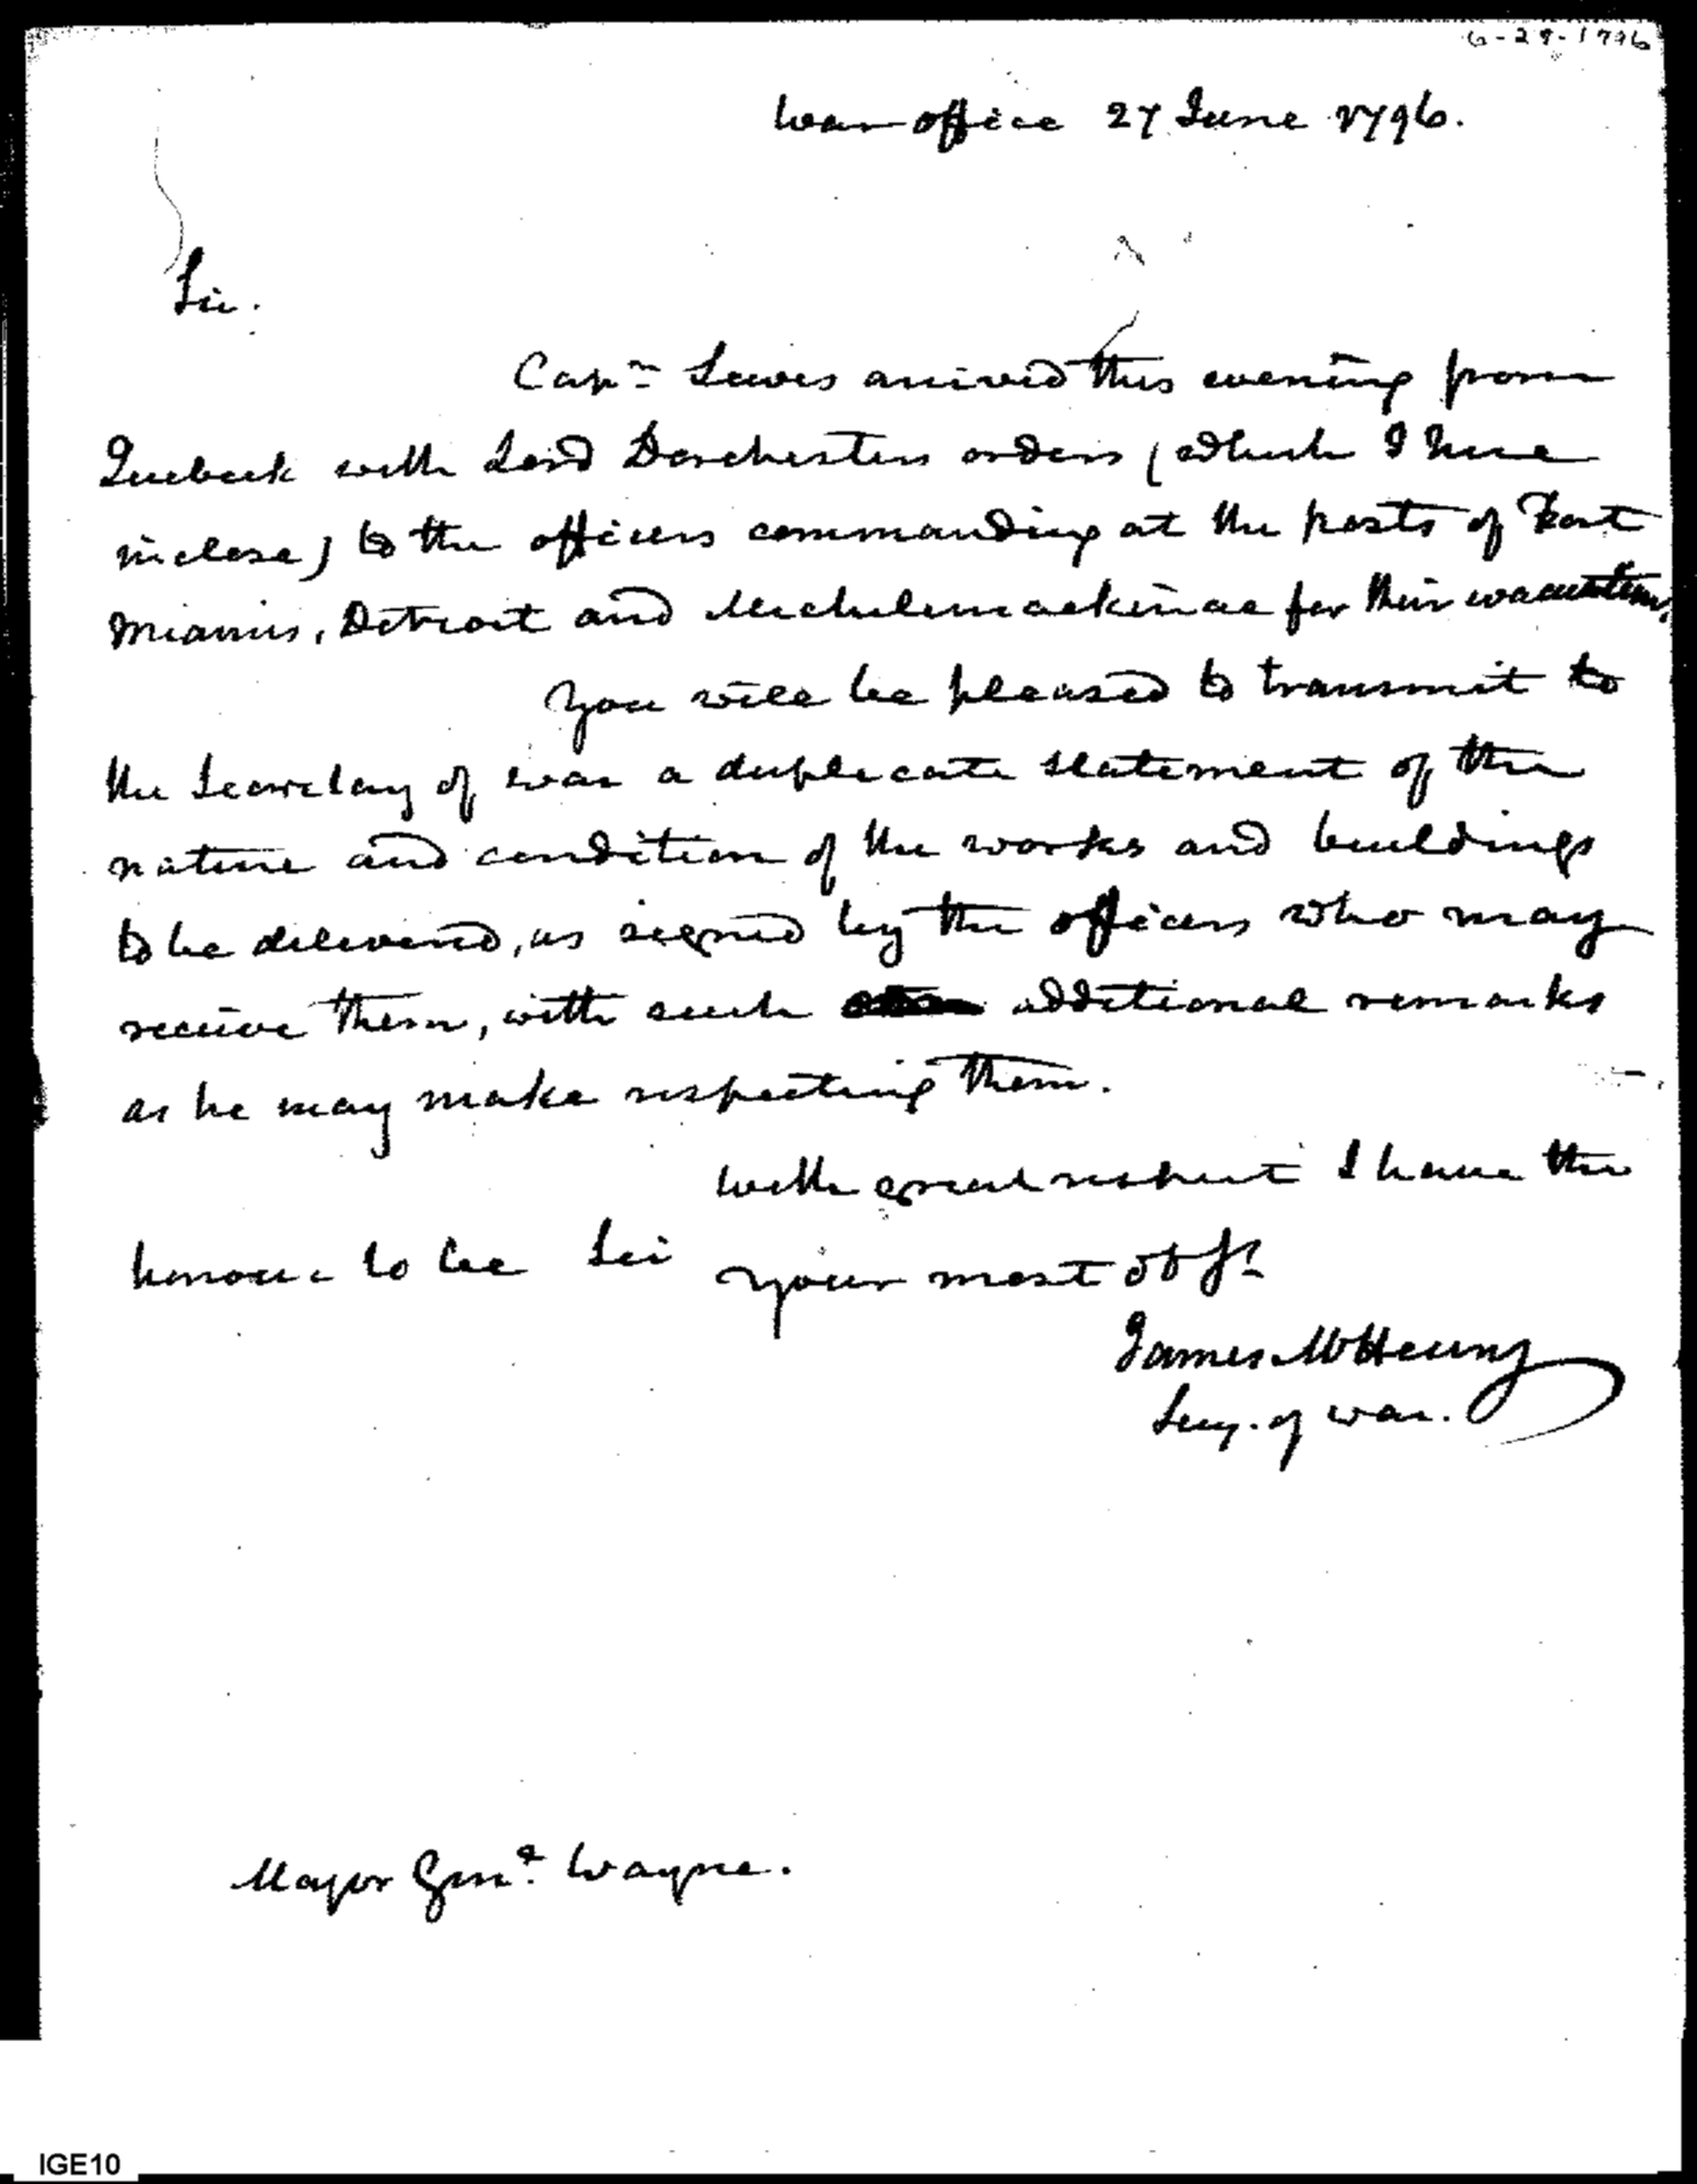 6-27-1796
War office 27 June 1796.
Sir.
Capn Lewis arrived this evening from
Quebeck with Lord Dorchesters orders (which I here
inclose) to the officers commanding at the posts of Fort
Miamis, Detroit and Michilimackinac for their evacuation.
You will be pleased to transmit to
the Secretary of war a duplicate statement of the
nature and condition of the works and buildings
to be delivered, as signed by the officers who may
receive them, with such additional remarks
as he may make respecting them.
With great respect I have the
honour to be Sir your most ob St
James McHenry
Secy. of war.
Major Genl. Wayne.
IGE10